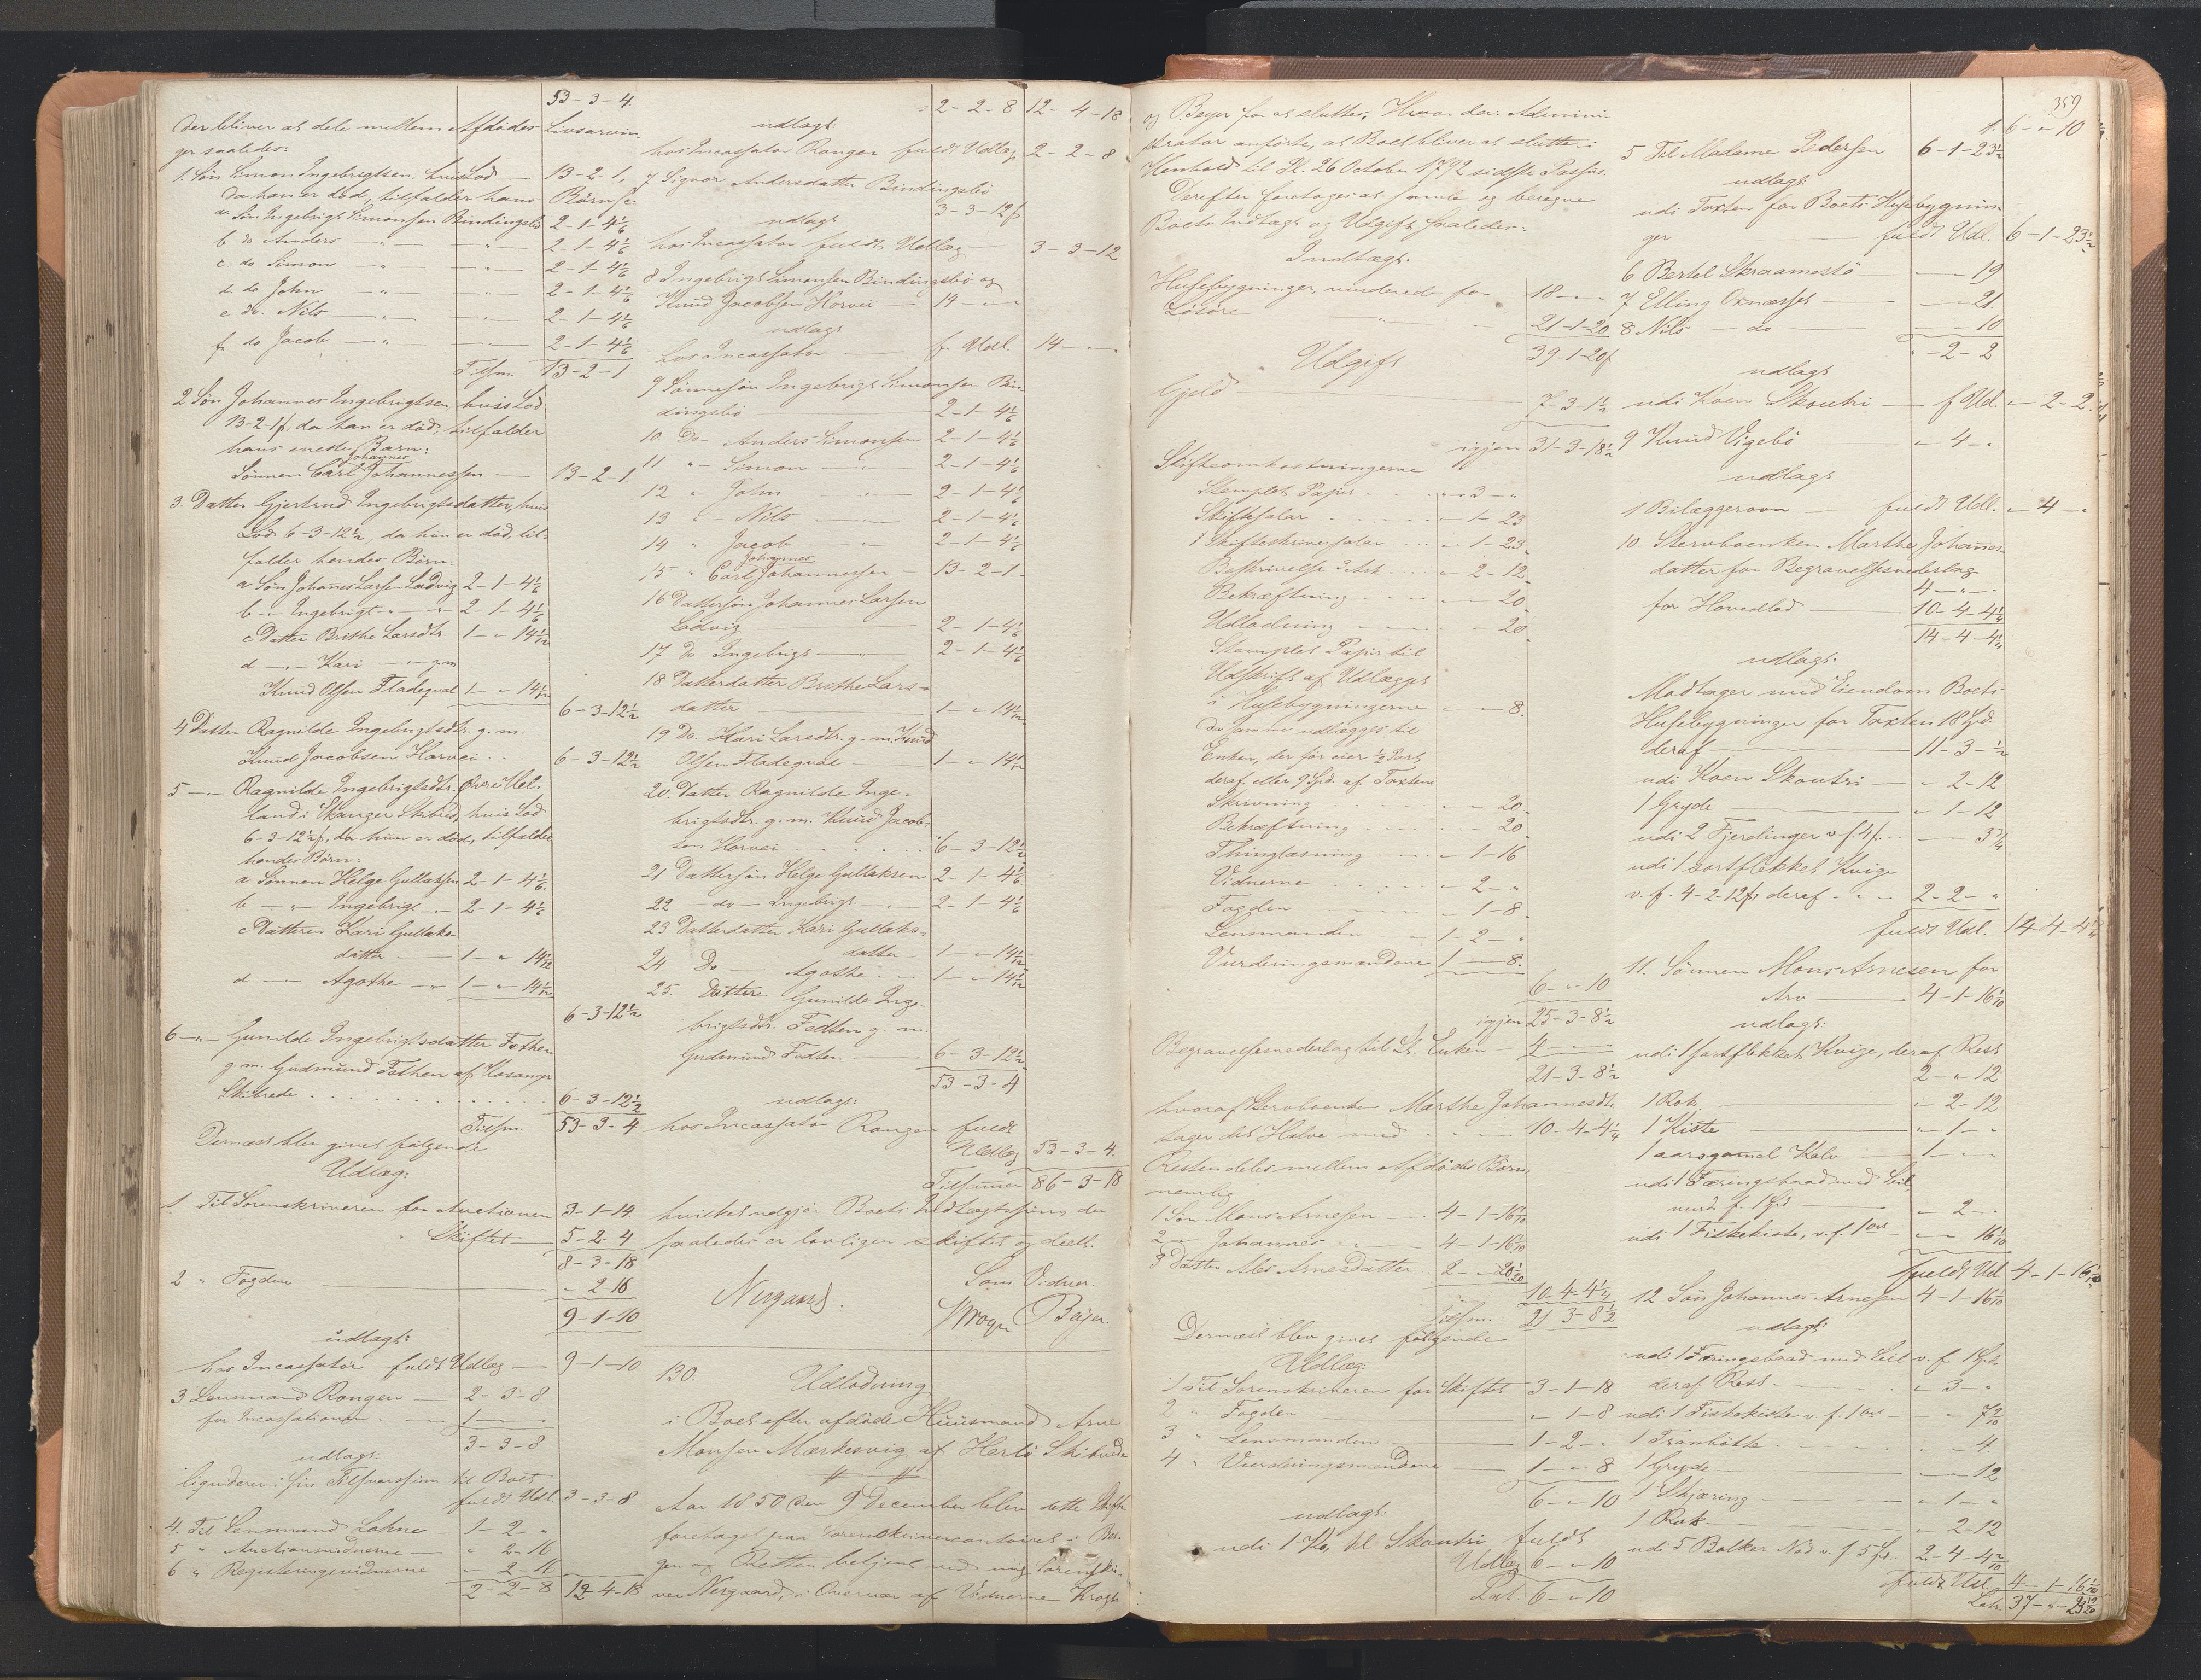 53-3-4.
der bliver at dele mellem Afdødes Livsarvin
ger saaledes:
1. Søn Simon Ingebrigtsen, hvis Lod — 13-2-1,
da han er död, tilfalder hans Börn:
a Søn Ingebrigt Simonsen Bindingsbö 2-1-4 1/6
b do Anders — " — 2-1-4 1/6
c do Simon — " — 2-1-4 1/6
d do John — " — 2-1-4 1/6
e do Nils — " — 2-1-4 1/6
f. do Jacob — " — 2-1-4 1/6
Tilsm. 13-2-1
2 Søn Johannes Ingebrigtsen, hvis Lod
13-2-1s. da han er död, tilfalder
hans eneste Barn:
Johannes
Sønnen Carl Johannessen — 13-2-1.
3. Datter Gjertrud Ingebrigtsdatter, hvis
Lod 6-3-12 1/2, da hun er död, til-
falder hendes Börn:
a Søn Johañes Larsen Ladvig 2-1-4 1/6
b — Ingebrigt — " — 2-1-4 1/6
c Datter Brithe Larsdtr. 1 - " 14 1/12
d — " — Kari — " — g. m.
Knud Olsen Fladeqval 1 - " 14 1/12
6-3-12 1/2
4 Datter Ragnilde Ingebrigtsdtr. g. m.
Knud Jacobsen Horvei . . . 6-3-12 1/2
5 — " — Ragnilde Ingebrigtsdtr. Øvre
land i Skanger Skibred, hvis Lod
6-3-12 1/2 s, da hun er död, tilfalder
hendes Börn:
a Sønnen Helge Gullaksen 2-1-4 1/6
b — " — Ingebrigt — " — 2-1-4 1/6
c Datteren Kari Gullaks-
datter — 1 - " 14 1/12
d — " — Agathe — " 1 - " 14 1/12
6-3-12 1/2
6 — " — Gunilde Ingebrigtsdatter Fethen
g. m. Gudmund Fethen af
Skibrede . . . . . . . . 6-3-12 1/2
Tilsm. 53-3-4
Dernæst blev givet følgende
Udlæg:
1 Til Sorenskriveren for Auctionen 3-1-14
" Skiftet 5-2-4
8-3-18
2 " Fogden — " 2 16
9-1-10
udlagt:
hos Incassator fuldt Udlæg — 9-1-10
3 Lensmand Rongen — 2-3-8
for Incassationen . — 1 — "
3-3-8
udlagt:
liqviderer i sin Tilsvarssum til Boet
fuldt Udl. 3-3-8
4. Til Lensmand Lohne — 1-2- "
5 " Auctionsvidnerne — " 2-16
6 " Registeringsvidnerne " 2-16
2-2-8 12-4-18
2-2-8 12-4-18
udlagt:
hos Incassator Rongen fuldt Udlæg 2-2-8
7 Signor Andersdatter Bindingsbö
3-3-12 s
udlagt
hos Incassator fuldt Udlæg 3-3-12
8 Ingebrigt Simonsen Bindingsbö og
Knud Jacobsen Horvei — 14 - "
udlagt
hos Incassator — f. Udl. 14 - "
9 Sønnesön Ingebrigt Simonsen Bin-
dingsbö — 2-1-4 1/6
10 Do — Anders Simonsen 2-1-4 1/6
11 " - Simon — " 2-1-4 1/6
12 " John " 2-1-4 1/6
13 " - Nils — " 2-1-4 1/6
14 " Jacob " 2-1-4 1/6
Johannes
15 " Carl Johannessen — 13-2-1.
16 Dattersön Johannes Larsen
Ladvig — 2-1-4 1/6
17 Do Ingebrigt — " — 2-1-4 1/6
18 Datterdatter Brithe Lars-
datter — 1 - " 14 1/12
19 Do. Kari Larsdtr. g. m. Knud
Olsen Fladeqval — 1 - " 14 1/12
20. Datter Ragnilde Inge-
brigtsdtr. g. m. Knud Jacob-
sen Horvei . . . . 6-3-12 1/2
21 Dattersön Helge Gullaksen 2-1-4 1/6
22 — do — Ingebrigt — " — 2-1-4 1/6
23 Datterdatter Kari Gullaks-
datter 1 - " 14 1/12
24 Do — Agathe . . 1 - " 14 1/12
25. Datter Gunilde Inge-
brigtsdtr. Fedten g. m.
Gudmund Fedten — 6-3-12 1/2
53-3-4
udlagt:
hos Incassator Rongen fuldt
Udlæg 53-3-4.
Tilsammen 86-3-18
hvilket udgjör Boets Indtægtssum der
saaledes er lovligen skiftet og deelt.
Som Vidner.
Nergaard. Krogh Beyer.
130. Udlodning
i Boet efter afdöde Huusmand Arne
Monsen Mærkesvig af Herlö Skibrede
Aar 1850 den 9 December blev dette Skifte
foretaget paa Sorenskrivercontoiret i Ber-
gen og Retten betjent ved mig Sorenskri-
ver Nergaard, i Overvær af Vidnerne Krogh
359
og Beyer for at sluttes, Hvor da: Admini-
strator anförte, at Boet bliver at slutte i
Henhold til Pl. 26 October 1792 sidste Passus.
Derefter foretages at samle og beregne
Boets Indtægt og Udgift saaledes:
Indtægt:
Husebygninger, vurderede for 18 - "
Lösöre " 21-1-20
39-1-20 s
Udgift
Gjeld — 7-3-1 1/2
igjen 31-3-18 1/2
Skifteomkostningerne
Stemplet Papir . . . " 3 - "
Skiftesalar . . . . . " 1-23
1/2 Skifteskriversalar . . . " 1-23
Beskrivelse 2 Ark . . . " 2-12
Bekræftning . . . . " 20
Udlodning — " 20
Stemplet Papir til
Udskrift af Udlægget
i Husebygningerne " - " 8.
da samme udlægges til
Enken, der før eier 1/2 Part
deraf eller 9 Spd. af Taxten
Skrivning . . . . . " - " 20
Bekræftning . . . . " 20
Thinglæsning . . . . " 1-16
Vidnerne . . . . . " 2- "
Fogden — " 1-8
Lensmanden — 1-2- "
Vurderingsmændene 1 - " 8.
6 - " 10
igjen 25-3-8 1/2
Begravelsesnederlag til St. Enken — 4 - "
21-3-8 1/2
hvoraf Stervboenken Marthe Johannesdtr.
tager det Halve med . . . 10-4-4 1/4
Resten deles mellem Afdödes Börn,
nemlig
1 Søn Mons Arnesen . . 4-1-16 1/10
2 " Johannes " 4-1-16 1/10
3 Datter Ales Arnesdatter 2 - " 20 1/20
10-4-4 1/4
Tilsm. 21 3-8 1/2
Dernæst blev givet følgende
Udlæg:
1 Til Sorenskriveren for Skiftet 3-1-18
2 " Fogden — " 1-8
3 " Lensmanden — 1-2- "
4 " Vurderingsmændene — 1 - " 8
6 - " 10
udlagt:
udi 1 Ko, bl. Skoutri fuldt
Udlæg 6 - " 10
Lat. 6 - " 10
t. 6 - " 10
5 Til Madame Pedersen 6-1-23 1/2
udlagt:
udi Taxten for Boets Husebygnin-
ger — fuldt Udl. 6-1-23 1/2
6 Bertel Skraamestö — " 19
7 Elling Oxnæsset — " 21
8 Nils — do — " 10
" -2-2
udlagt
udi Koen Skoutri — f Udl. " -2-2.
9 Knud Vigebö — " 4- "
udlagt
1 Bilæggerovn — fuldt Udl. " 4- "
10. Stervboenken Marthe Johañes-
datter for Begravelsesnederlag
4 - " -
for Hovedlod — 10-4-4 1/4
14-4-4 1/4
udlagt:
Modtager med Eiendom Boets
Husebygninger for Taxten 18 Spd.
deraf — 11-3- 1/2
udi Koen Skoutri — " 2-12
1 Gryde — " 1-12
udi 2 Fjerdinger v. f. 4 s. . . . — 3 3/4
udi 1 sortflekket Kvige
v. f. 4-2-12 s, deraf . . 2-2- "
fuldt Udl. 14-4-4 1/4
11. Sønnen Mons Arnesen for
Arv — 4-1-16 1/10
udlagt:
udi 1 sortflekket Kvige, deraf Rest
2- " 12
1 Rok — " 2-12
1 Kiste — " 1- "
1 aarsgamel Kalv — 1- "
udi 1 Færingsbaad med Seil,
vurd. f. 1 Spd — " 2- "
udi 1 Fiskekiste, v. f. 1 ort — " " 16 1/10
fuldt Udl. 4-1-16 1/10
12 Søn Johannes Arnesen 4-1-16 1/10
udlagt:
udi 1 Færingsbaad med Seil v. f. 1 Spd.
deraf Rest . — " 3- "
udi 1 Fiskekiste v. f. 1 ort — " 7 9/10
1 Tranbötte . . " 4
1 Gryde — " 12
1 Skjæring — " 1- "
1 Rok — " 2-12
udi 5 Bolker Nod v. f 5 Spd. 2-4-4 2/10
fuldt Udl. 4-1-16 1/10
Lat. 37- " -23 19/20